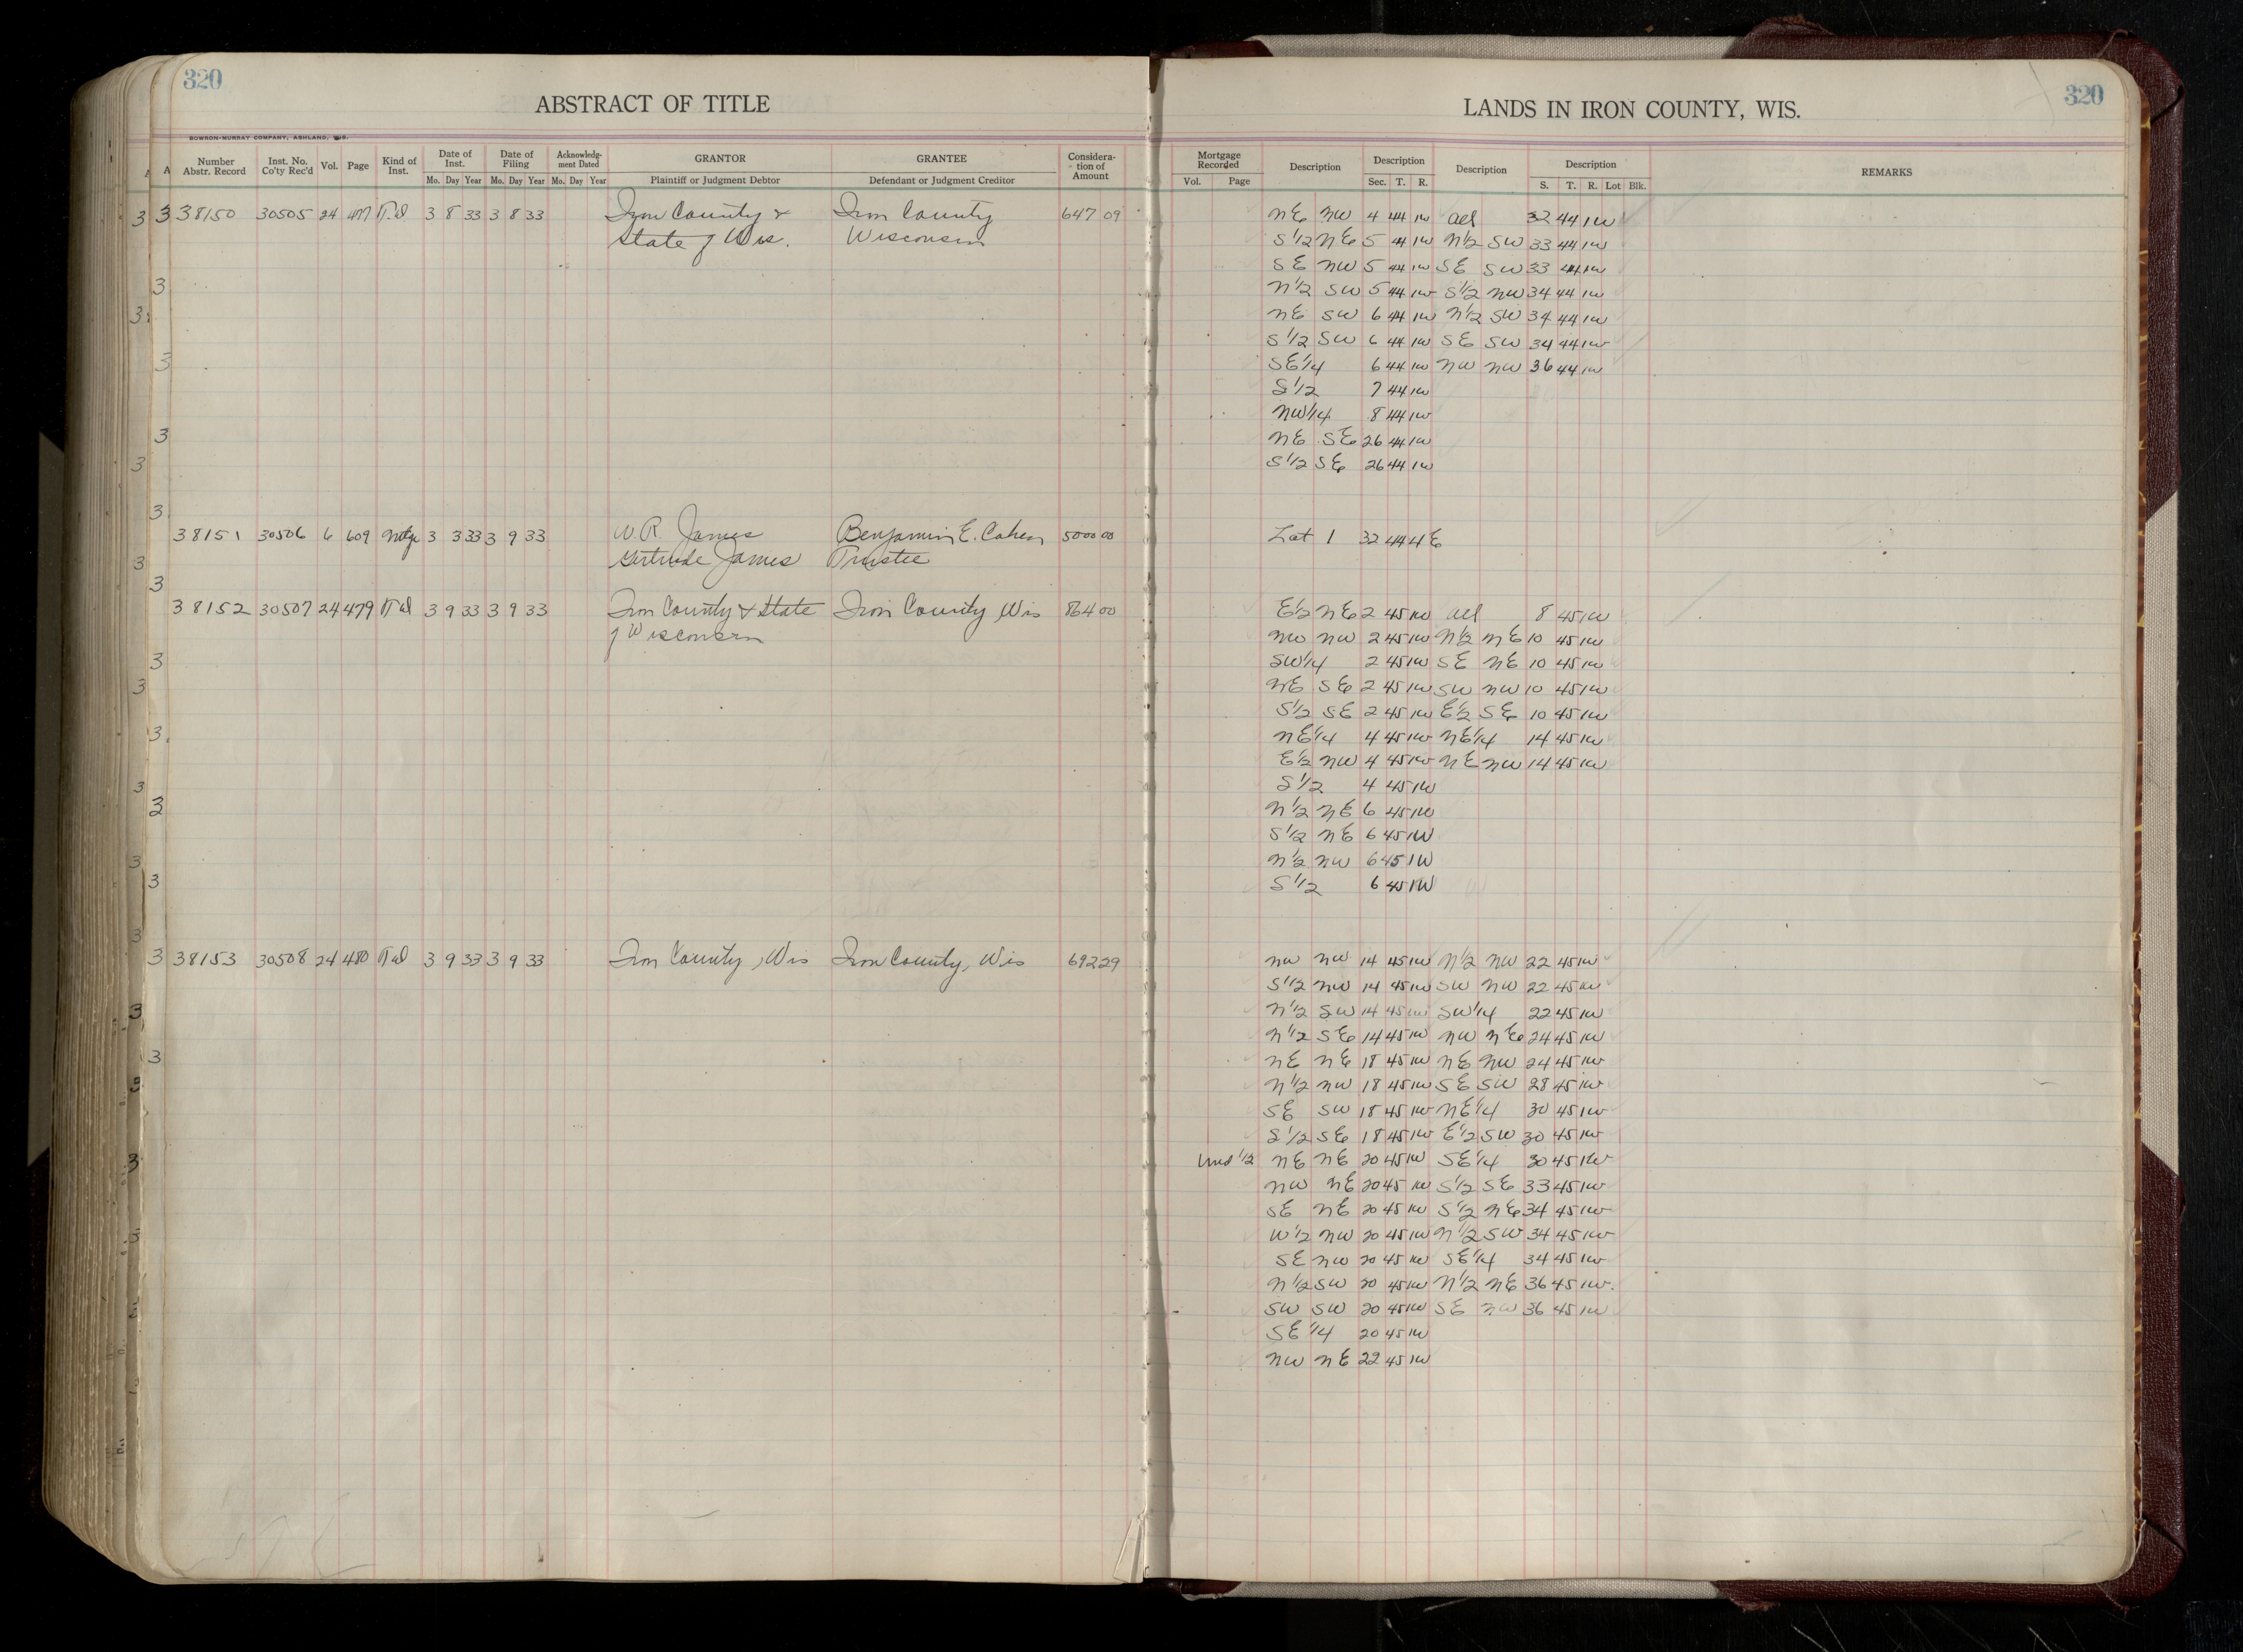 320
ABSTRACT OF TITLE
BOWRON-MURRAY COMPANY, ASHLAND, WIS.
Number Abstr. Record Inst. No. Co'ty Rec'd Vol. Page Kind of Inst. Date of Inst. Date of Filing Acknowledg-ment Dated GRANTOR GRANTEE Considera-tion of Amount
Mo. Day Year Mo. Day Year Mo. Day Year Plaintiff or Judgment Debtor Defendant or Judgment Creditor
38150 30505 24 477 T.d 3 8 33 3 8 33 Iron County & Iron County 647 09
State of Wis. Wisconsin
38151 30506 6 609 Mtge 3 3 33 3 9 33 W. R. James Benjamin E. Cohen 5000 00
Gertrude James Trustee
38152 30507 24 479 T d 3 9 33 3 9 33 Iron County & State Iron County Wis 864 00
of Wisconsin
38153 30508 24 480 T d 3 9 33 3 9 33 Iron County, Wis Iron County, Wis 692 29
320
LANDS IN IRON COUNTY, WIS.
Mortgage Recorded Description Description Description Description REMARKS
Vol. Page Sec. T. R. S. T. R. Lot Blk.
NE NW 4 44 1W all 32 44 1W
S1/2 NE 5 44 1W N1/2 SW 33 44 1W
SE NW 5 44 1W SE SW 33 44 1W
N1/2 SW 5 44 1W S1/2 NW 34 44 1W
NE SW 6 44 1W N1/2 SW 34 44 1W
S1/2 SW 6 44 1W SE SW 34 44 1W
SE1/4 6 44 1W NW NW 36 44 1W
S1/2 7 44 1W
NW1/4 8 44 1W
NE SE 26 44 1W
S1/2 SE 26 44 1W
Lot 1 32 44 4E
E1/2 NE 2 45 1W all 8 45 1W
NW NW 2 45 1W N1/2 NE 10 45 1W
SW1/4 2 45 1W SE NE 10 45 1W
NE SE 2 45 1W SW NW 10 45 1W
S1/2 SE 2 45 1W E1/2 SE 10 45 1W
NE1/4 4 45 1W NE1/4 14 45 1W
E1/2 NW 4 45 1W NE NW 14 45 1W
S1/2 4 45 1W
N1/2 NE 6 45 1W
S1/2 NE 6 45 1W
N1/2 NW 6 45 1W
S1/2 6 45 1W
NW NW 14 45 1W N1/2 NW 22 45 1W
S1/2 NW 14 45 1W SW NW 22 45 1W
N1/2 SW 14 45 1W SW1/4 22 45 1W
N1/2 SE 14 45 1W NW NE 24 45 1W
NE NE 18 45 1W NE NW 24 45 1W
N1/2 NW 18 45 1W SE SW 28 45 1W
SE SW 18 45 1W NE1/4 30 45 1W
S1/2 SE 18 45 1W E1/2 SW 30 45 1W
Und 1/2 NE NE 20 45 1W SE1/4 30 45 1W
NW NE 20 45 1W S1/2 SE 33 45 1W
SE NE 20 45 1W S1/2 NE 34 45 1W
W1/2 NW 20 45 1W N1/2 SW 34 45 1W
SE NW 20 45 1W SE1/4 34 45 1W
N1/2 SW 20 45 1W N1/2 NE 36 45 1W
SW SW 20 45 1W SE NW 36 45 1W
SE1/4 20 45 1W
NW NE 22 45 1W